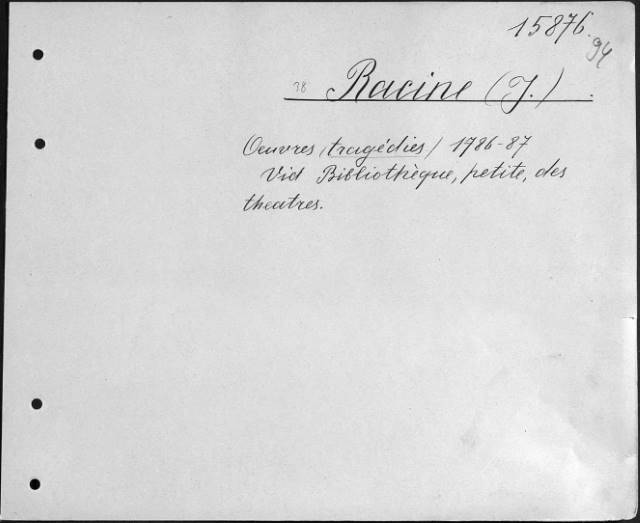 15876.
94
38 Racine (J.).
Oeuvres (tragédies) 1786-87
Vid Bibliothèque, petite, des
theatres.